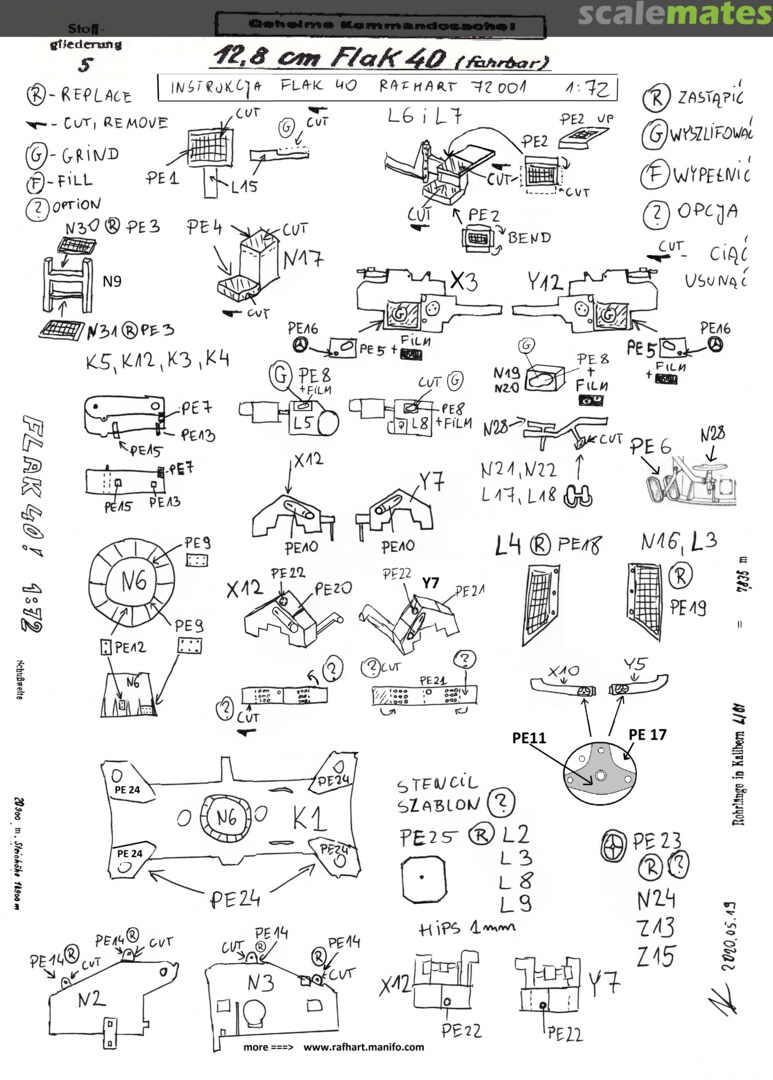 scalemates
Stoff-
gliederung
5
Geheime Kommandosache!
12,8 cm FlaK 40 (fahrbar)
INSTRUKCJA FLAK 40 RAFHART 72001 1:72
R - REPLACE
- CUT, REMOVE
G - GRIND
F - FILL
? OPTION
R ZASTĄPIĆ
G WYSZLIFOWAĆ
F WYPEŁNIĆ
? OPCJA
CUT - CIĄĆ
USUNĄĆ
CUT
PE1
L15
G CUT
L6 i L7
PE2 UP
PE2
CUT
CUT
CUT
PE2
BEND
N30 R PE3
N9
N31 R PE3
PE4
CUT
N17
CUT
X3
G
PE16
PE5 + FILM
Y12
G
PE16
PE5
+ FILM
K5, K12, K3, K4
PE7
PE13
PE15
PE7
PE15 PE13
G PE8
+ FILM
L5
CUT G
PE8
+ FILM
L8
G
N19
N20
PE8
+
FILM
N28
CUT
N21, N22
L17, L18
PE6
N28
X12
PE10
Y7
PE10
L4 R PE18
N16, L3
R
PE19
PE9
N6
PE9
PE12
N6
X12
PE22
PE20
PE22
Y7
PE21
?
? CUT
? CUT
PE21
?
X10
Y5
PE11
PE 17
PE 24
PE24
N6
K1
PE 24
PE24
PE24
STENCIL
SZABLON ?
PE25 R L2
L3
L8
L9
HIPS 1mm
PE23
R ?
N24
Z13
Z15
PE14 R
CUT
PE14 R
CUT
N2
CUT
R PE14
R PE14
CUT
N3
X12
PE22
Y7
PE22
more ===> www.rafhart.manifo.com
FLAK 40! 1:72
Schußweite
20900 m, Steighöhe 14800 m
Rohrlänge in Kalibern L/61
= 7,835 m
2020.05.19